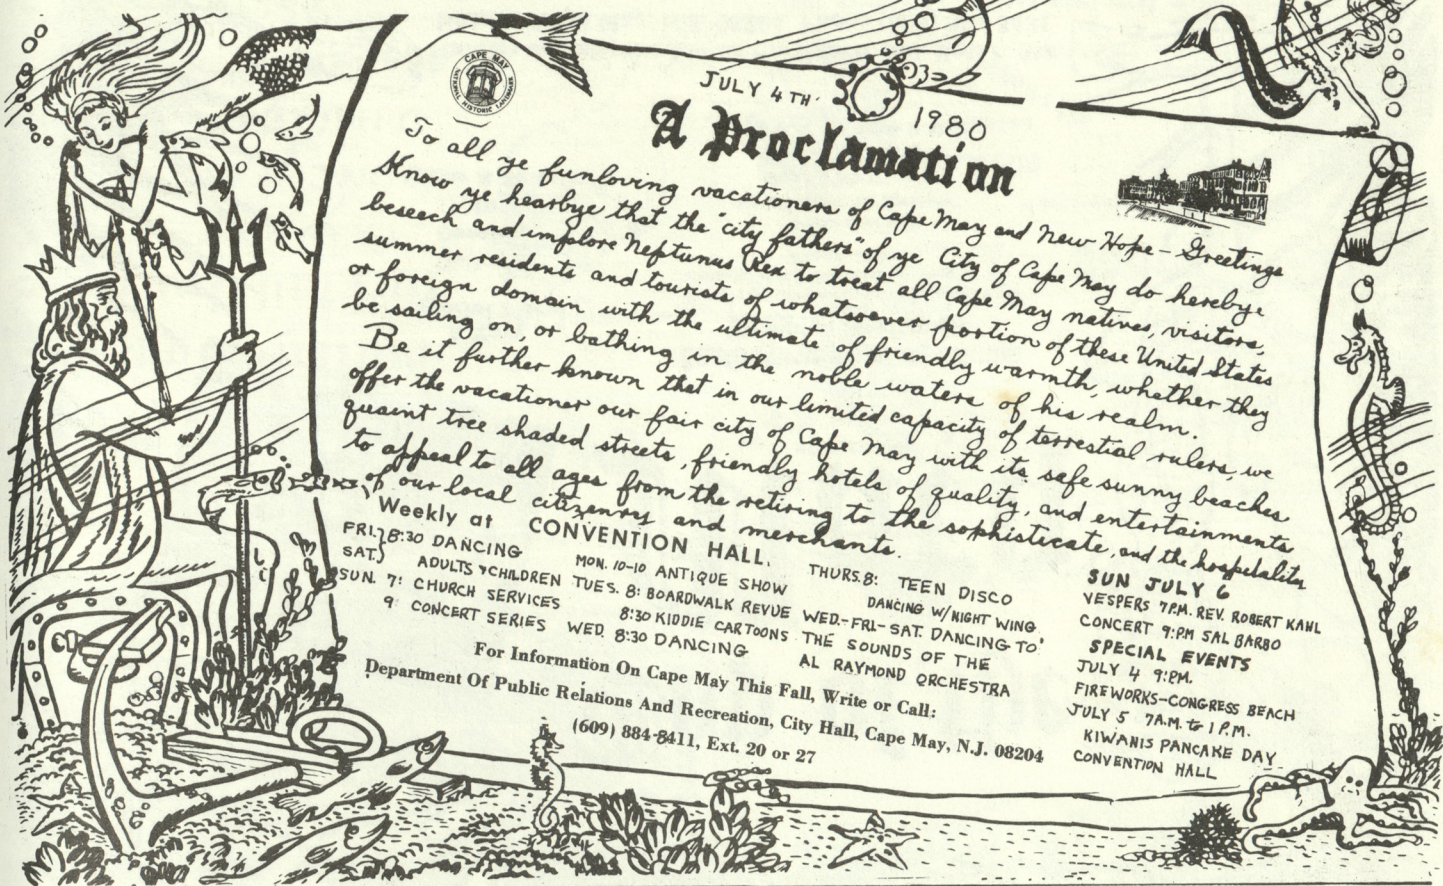 CAPE MAY
NATIONAL HISTORIC LANDMARK
JULY 4TH. 1980
A Proclamation
To all ye funloving vacationers of Cape May and New Hope - Greetings
Know ye hearbye that the "city fathers" of ye City of Cape May do hereby
beseech and implore Neptunus Rex to treat all Cape May natives, visitors,
summer residents and tourists of whatsoever portion of these United States
or foreign domain with the ultimate of friendly warmth, whether they
be sailing on, or bathing in the noble waters of his realm.
Be it further known that in our limited capacity of terrestial rulers, we
offer the vacationer our fair city of Cape May with its safe sunny beaches
quaint tree shaded streets, friendly hotels of quality, and entertainments
to appeal to all ages from the retiring to the sophisticate, and the hospitality
of our local citizenry and merchants.
Weekly at CONVENTION HALL.
FRI.} 8:30 DANCING
SAT.} ADULTS & CHILDREN
SUN. 7: CHURCH SERVICES
9: CONCERT SERIES
MON. 10-10 ANTIQUE SHOW
TUES. 8: BOARDWALK REVUE
8:30 KIDDIE CARTOONS
WED. 8:30 DANCING
THURS. 8: TEEN DISCO
DANCING W/NIGHT WING.
WED.-FRI-SAT. DANCING TO:
THE SOUNDS OF THE
AL RAYMOND ORCHESTRA
SUN JULY 6
VESPERS 7P.M. REV. ROBERT KAHL
CONCERT 9:PM SAL BARBO
SPECIAL EVENTS
JULY 4 9:PM.
FIREWORKS-CONGRESS BEACH
JULY 5 7A.M. to 1P.M.
KIWANIS PANCAKE DAY
CONVENTION HALL
For Information On Cape May This Fall, Write or Call:
Department Of Public Relations And Recreation, City Hall, Cape May, N.J. 08204
(609) 884-8411, Ext. 20 or 27